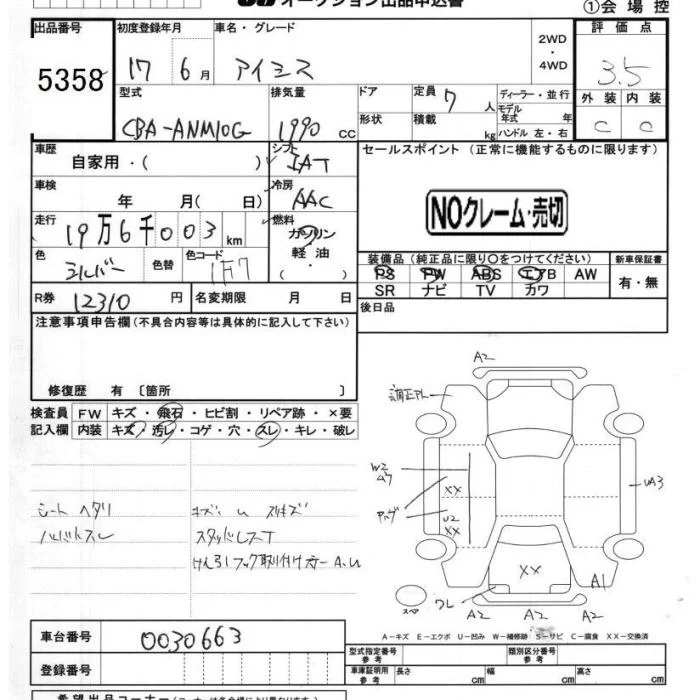 オークション出品申込書
①会場控
出品番号 初度登録年月 車名・グレード 2WD・4WD 評価点
5358 17 6月 アイシス 3.5
型式 排気量 ドア 定員 7人 ディーラー・並行 外装 内装
CBA-ANM10G 1990 cc 形状 積載 kg モデル年式 年 ハンドル 左・右 C C
車歴 自家用・( ) シフト IAT セールスポイント (正常に機能するものに限ります)
車検 年 月( 日) 冷房 AAC
NOクレーム・売切
走行 19万6千003km 燃料 ガソリン 軽油 (・)
色 シルバー 色替 色コード 1F7
装備品 (純正品に限り○をつけてください) 新車保証書
PS PW ABS エアB AW 有・無
SR ナビ TV カワ
R券 12310 円 名変期限 月 日 後日品
注意事項申告欄(不具合内容等は具体的に記入して下さい)
修復歴 有〔箇所 〕
検査員 FW キズ・飛石・ヒビ割・リペア跡・×要
記入欄 内装 キズ・汚レ・コゲ・穴・スレ・キレ・破レ
シートヘタリ キズ U スリキズ
スタッドレスT
けん引フック取付け方-A、U
A2
W2
XX
U2
XX
UA3
XX
A1
ワレ
スペア
A2 A2 A2
A-キズ E-エクボ U-凹み W-補修跡 S-サビ C-腐食 XX-交換済
車台番号 0030663
型式指定番号 参考 類別区分番号 参考
登録番号
車庫証明用 参考 長さ cm 幅 cm 高さ cm
希望出品コーナー(コーナーは各会場により異なります)